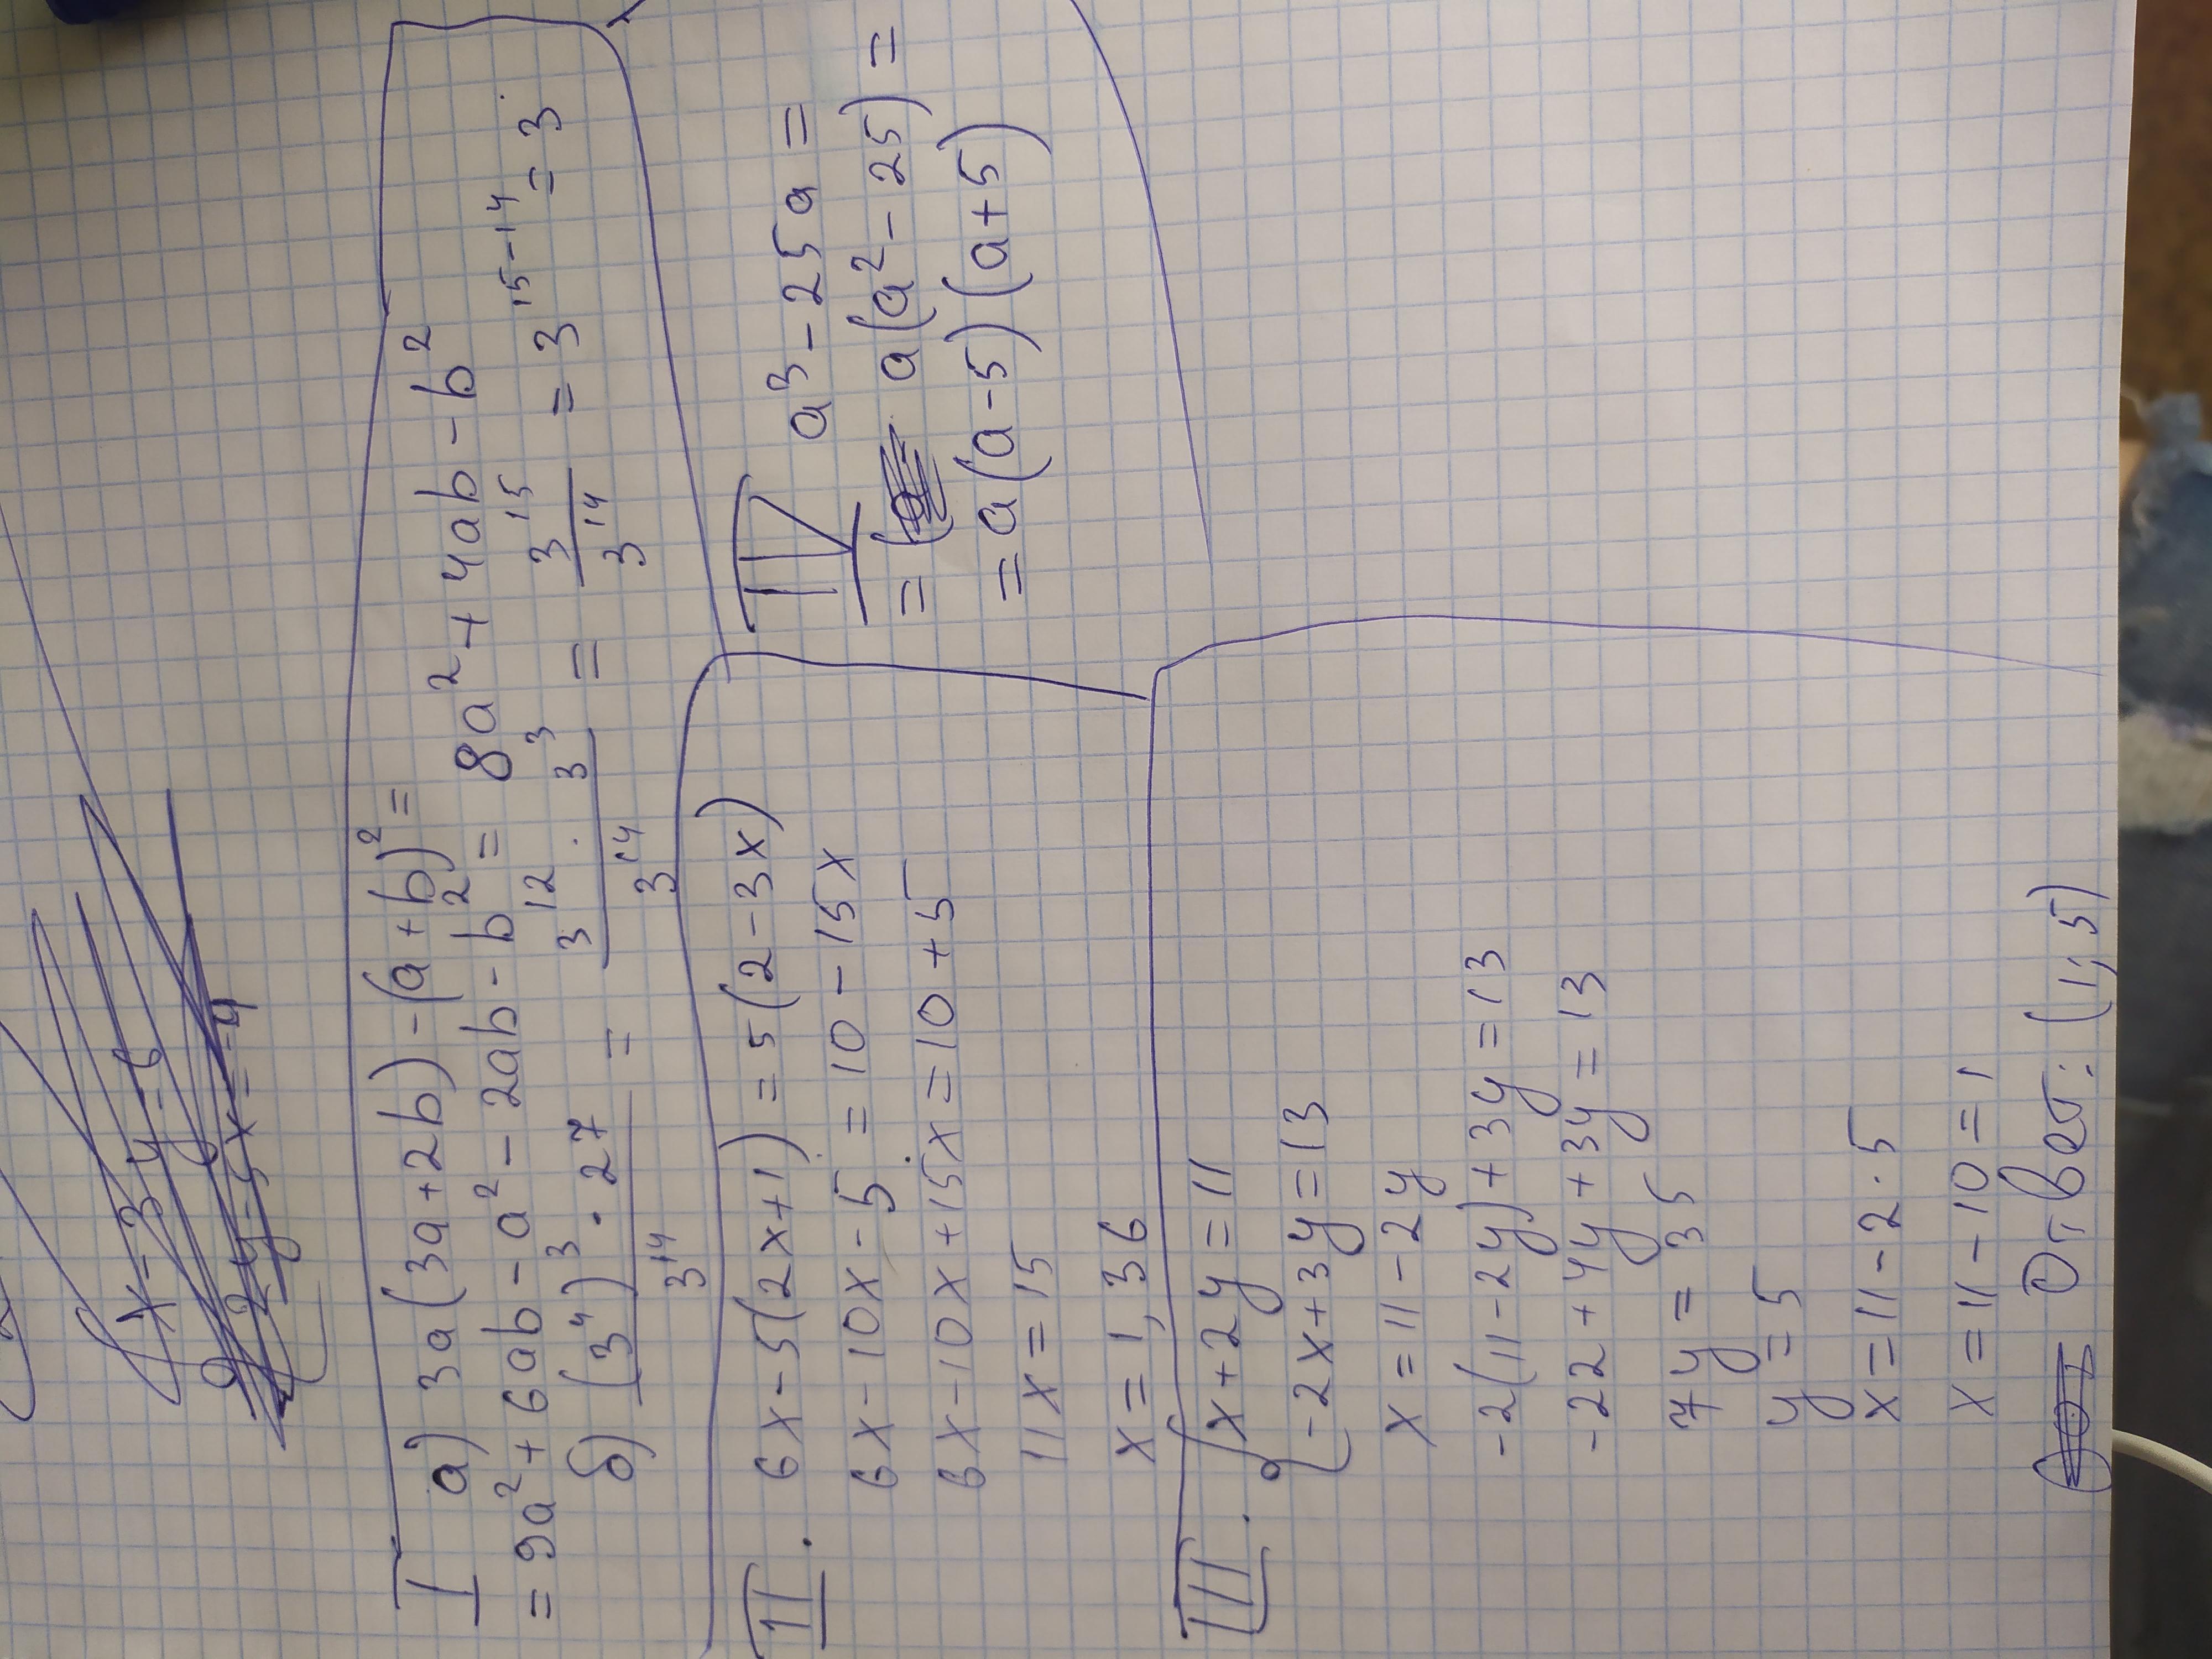 x - 3y = 6
2y - 5x = -4
I а) 3a(3a+2b) - (a+b)² =
= 9a² + 6ab - a² - 2ab - b² = 8a² + 4ab - b²
б) (3⁴)³ · 27 / 3¹⁴ = 3¹² · 3³ / 3¹⁴ = 3¹⁵ / 3¹⁴ = 3¹⁵⁻¹⁴ = 3
II. 6x - 5(2x+1) = 5(2-3x)
6x - 10x - 5 = 10 - 15x
6x - 10x + 15x = 10 + 5
11x = 15
x = 1,36
III. { x + 2y = 11
-2x + 3y = 13
x = 11 - 2y
-2(11-2y) + 3y = 13
-22 + 4y + 3y = 13
7y = 35
y = 5
x = 11 - 2 · 5
x = 11 - 10 = 1
Ответ: (1; 5)
IV a³ - 25a =
= a(a² - 25) =
= a(a-5)(a+5)